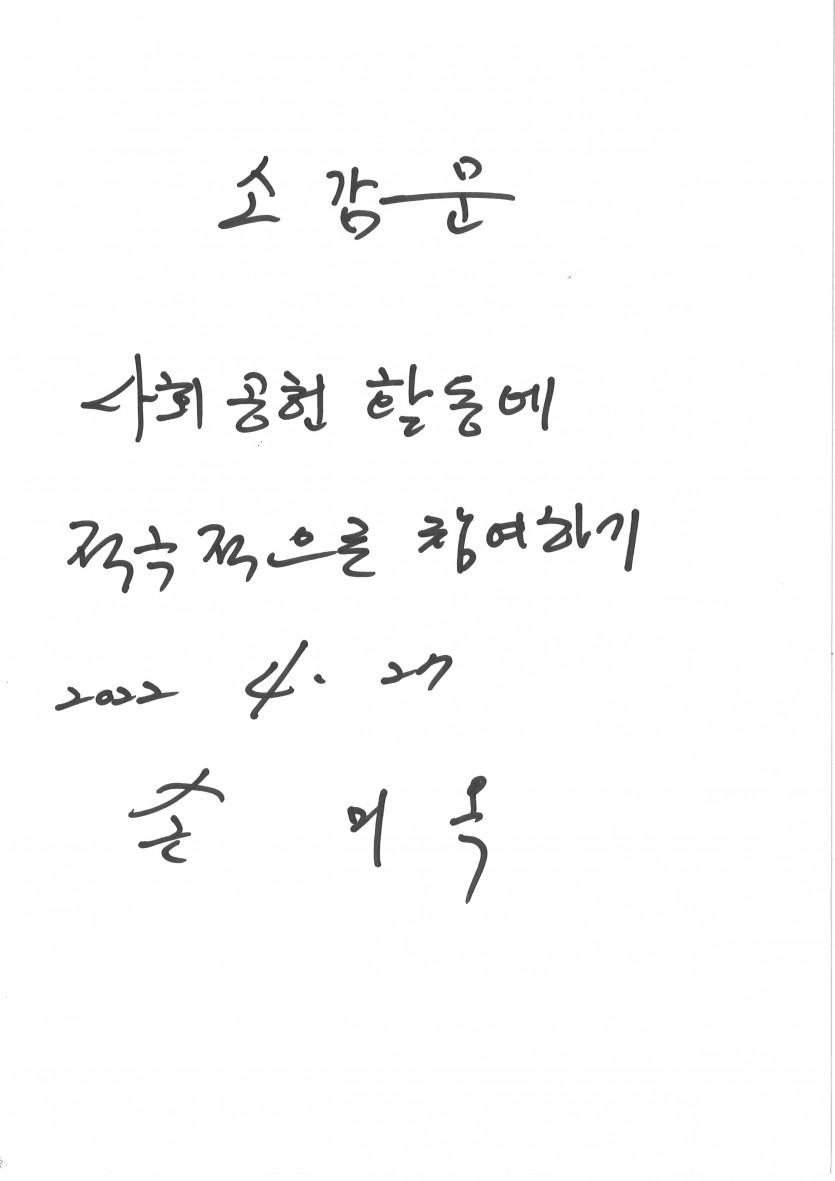 소감문
사회공헌 활동에
적극적으로 참여하기
2022 4. 27
손 미 옥